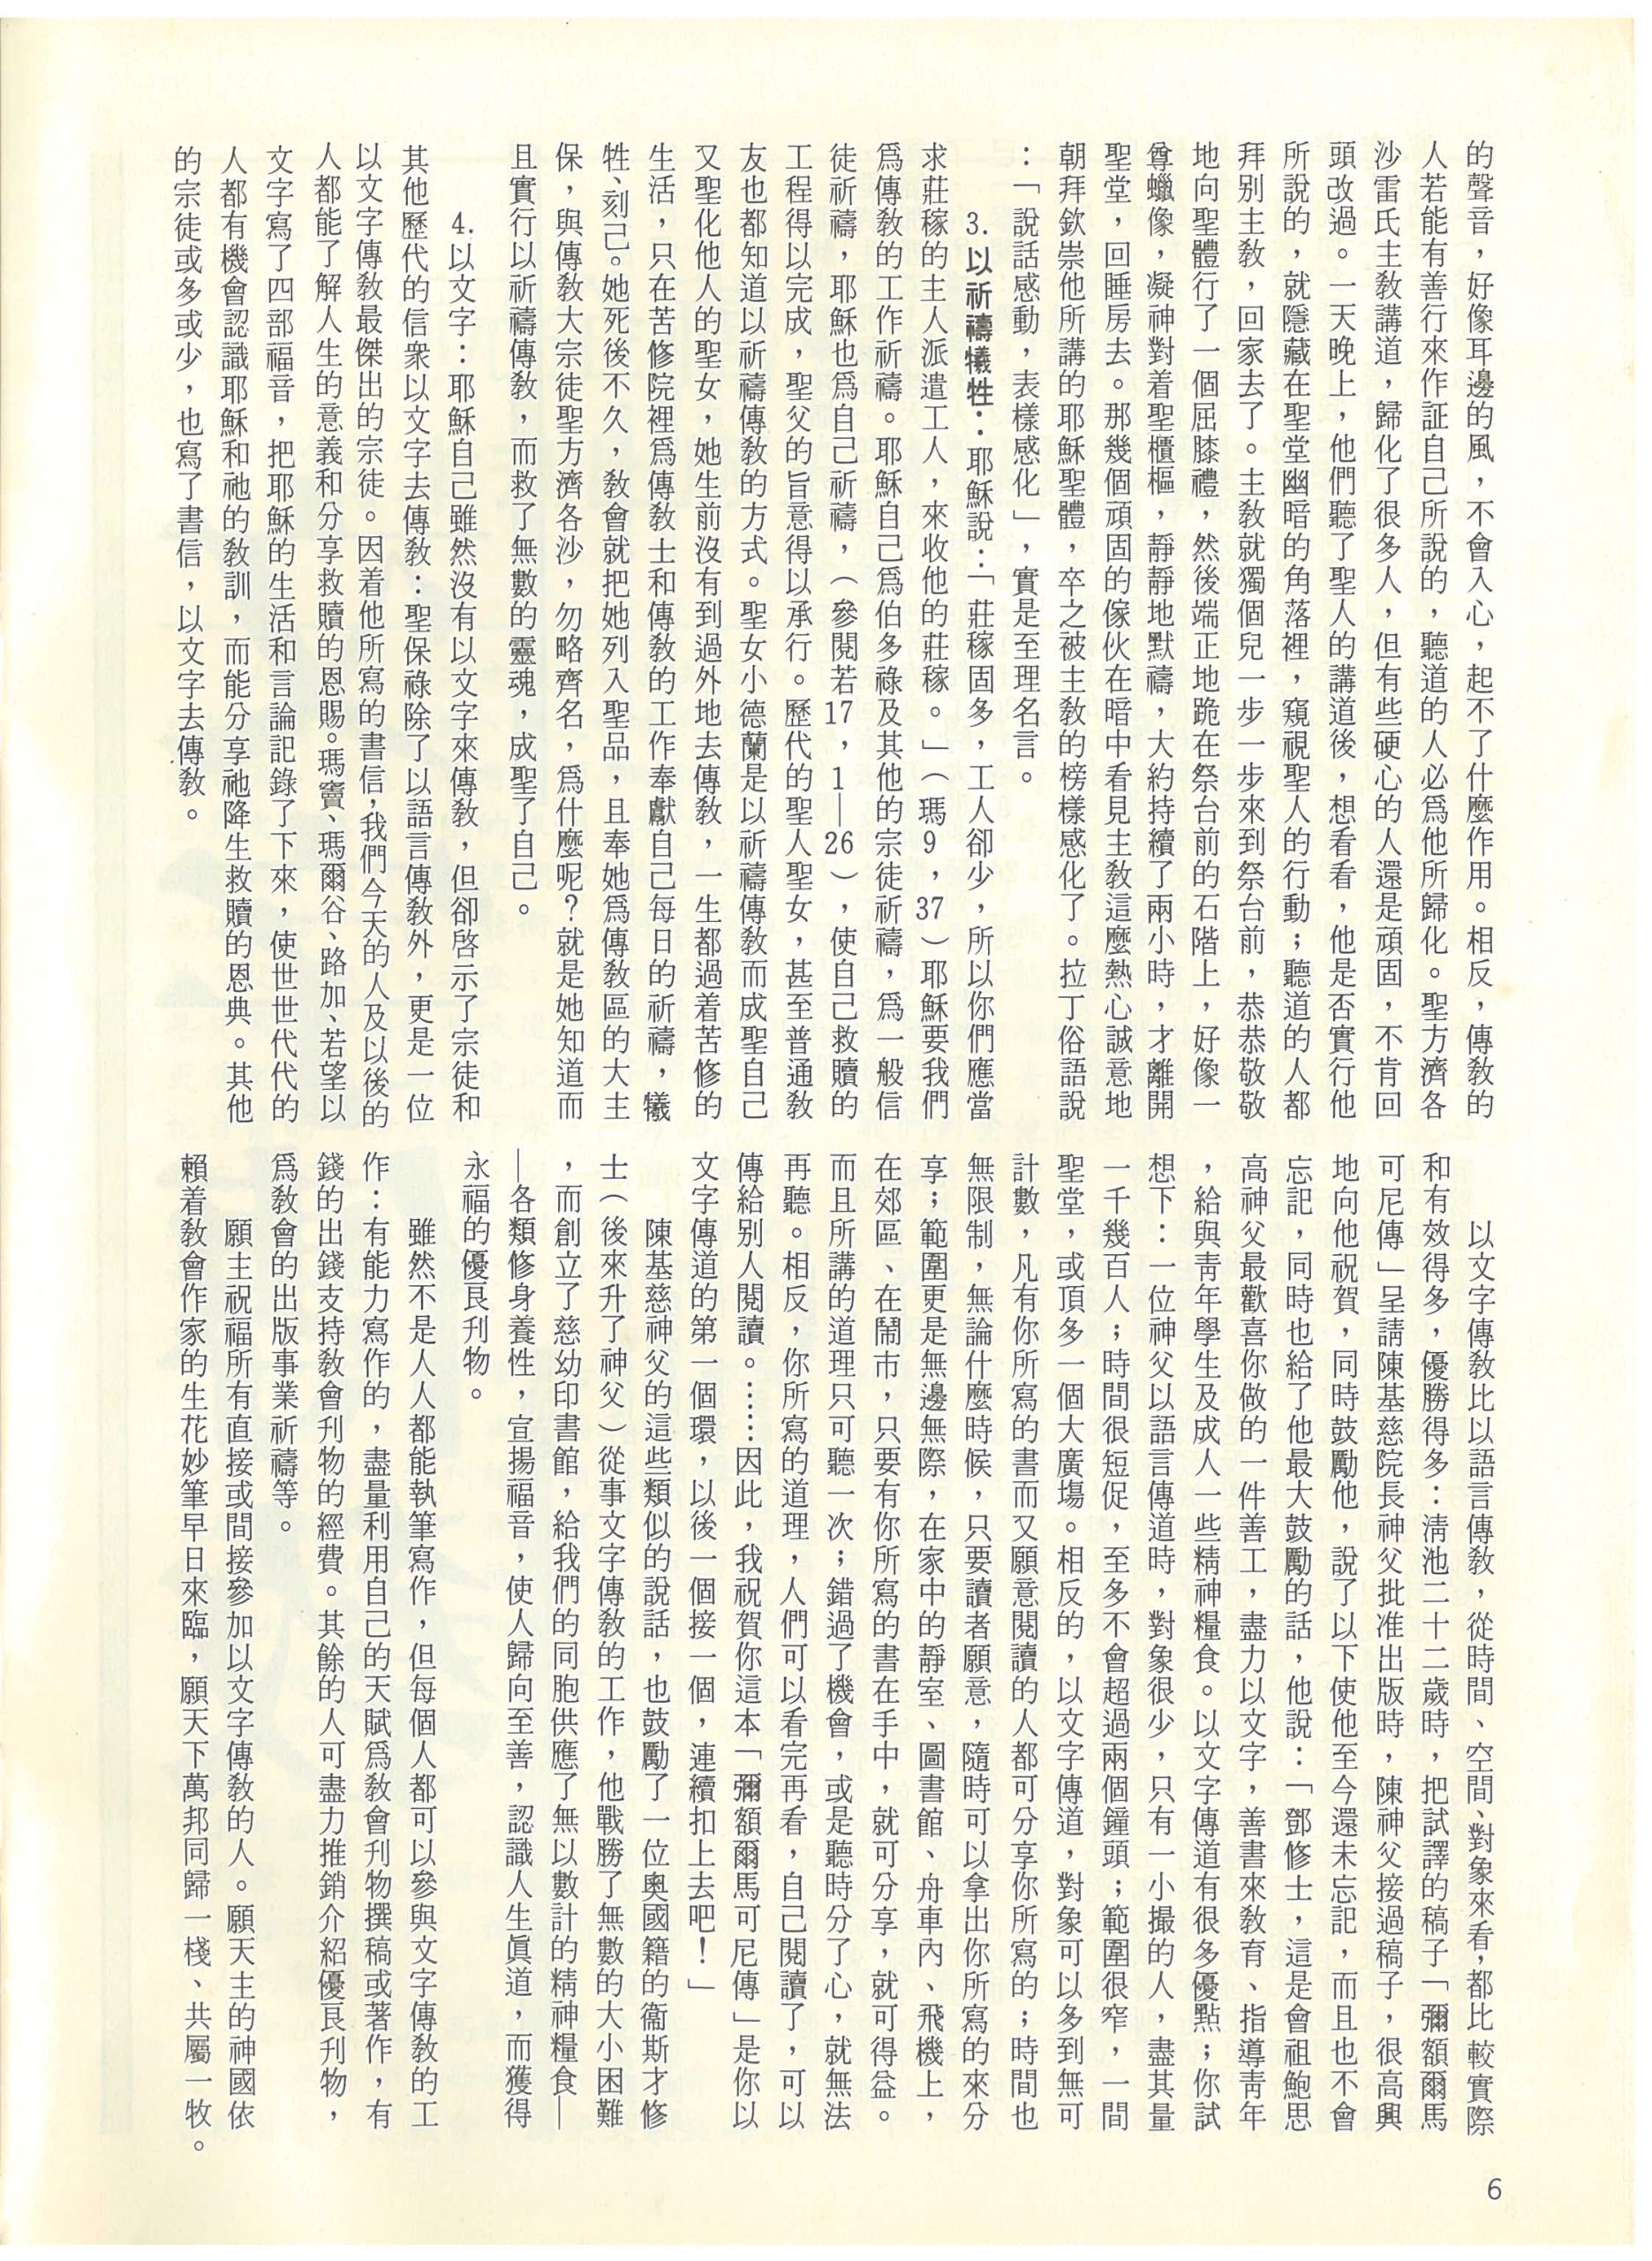 的聲音，好像耳邊的風，不會入心，起不了什麼作用。相反，傳教的
人若能有善行來作証自己所說的，聽道的人必爲他所歸化。聖方濟各
沙雷氏主教講道，歸化了很多人，但有些硬心的人還是頑固，不肯回
頭改過。一天晚上，他們聽了聖人的講道後，想看看，他是否實行他
所說的，就隱藏在聖堂幽暗的角落裡，窺視聖人的行動；聽道的人都
拜別主教，回家去了。主教就獨個兒一步一步來到祭台前，恭恭敬敬
地向聖體行了一個屈膝禮，然後端正地跪在祭台前的石階上，好像一
尊蠟像，凝神對着聖櫃樞，靜靜地默禱，大約持續了兩小時，才離開
聖堂，回睡房去。那幾個頑固的傢伙在暗中看見主教這麼熱心誠意地
朝拜欽崇他所講的耶穌聖體，卒之被主教的榜樣感化了。拉丁俗語說
：「說話感動，表樣感化」，實是至理名言。
3.以祈禱犧牲：耶穌說：「莊稼固多，工人卻少，所以你們應當
求莊稼的主人派遣工人，來收他的莊稼。」（瑪9，37）耶穌要我們
爲傳教的工作祈禱。耶穌自己爲伯多祿及其他的宗徒祈禱，爲一般信
徒祈禱，耶穌也爲自己祈禱，（參閱若17，1—26），使自己救贖的
工程得以完成，聖父的旨意得以承行。歷代的聖人聖女，甚至普通教
友也都知道以祈禱傳教的方式。聖女小德蘭是以祈禱傳教而成聖自己
又聖化他人的聖女，她生前沒有到過外地去傳教，一生都過着苦修的
生活，只在苦修院裡爲傳教士和傳教的工作奉獻自己每日的祈禱，犧
牲、刻己。她死後不久，教會就把她列入聖品，且奉她爲傳教區的大主
保，與傳教大宗徒聖方濟各沙，勿略齊名，爲什麼呢？就是她知道而
且實行以祈禱傳教，而救了無數的靈魂，成聖了自己。
4.以文字：耶穌自己雖然沒有以文字來傳教，但卻啓示了宗徒和
其他歷代的信衆以文字去傳教：聖保祿除了以語言傳教外，更是一位
以文字傳教最傑出的宗徒。因着他所寫的書信，我們今天的人及以後的
人都能了解人生的意義和分享救贖的恩賜。瑪竇、瑪爾谷、路加、若望以
文字寫了四部福音，把耶穌的生活和言論記錄了下來，使世世代代的
人都有機會認識耶穌和祂的教訓，而能分享祂降生救贖的恩典。其他
的宗徒或多或少，也寫了書信，以文字去傳教。
以文字傳教比以語言傳教，從時間、空間、對象來看，都比較實際
和有效得多，優勝得多：淸池二十二歲時，把試譯的稿子「彌額爾馬
可尼傳」呈請陳基慈院長神父批准出版時，陳神父接過稿子，很高興
地向他祝賀，同時鼓勵他，說了以下使他至今還未忘記，而且也不會
忘記，同時也給了他最大鼓勵的話，他說：「鄧修士，這是會祖鮑思
高神父最歡喜你做的一件善工，盡力以文字，善書來教育、指導靑年
，給與靑年學生及成人一些精神糧食。以文字傳道有很多優點；你試
想下：一位神父以語言傳道時，對象很少，只有一小撮的人，盡其量
一千幾百人；時間很短促，至多不會超過兩個鐘頭；範圍很窄，一間
聖堂，或頂多一個大廣塲。相反的，以文字傳道，對象可以多到無可
計數，凡有你所寫的書而又願意閱讀的人都可分享你所寫的；時間也
無限制，無論什麼時候，只要讀者願意，隨時可以拿出你所寫的來分
享；範圍更是無邊無際，在家中的靜室、圖書館、舟車內、飛機上，
在郊區、在鬧市，只要有你所寫的書在手中，就可分享，就可得益。
而且所講的道理只可聽一次；錯過了機會，或是聽時分了心，就無法
再聽。相反，你所寫的道理，人們可以看完再看，自己閱讀了，可以
傳給別人閱讀。……因此，我祝賀你這本「彌額爾馬可尼傳」是你以
文字傳道的第一個環，以後一個接一個，連續扣上去吧！」
陳基慈神父的這些類似的說話，也鼓勵了一位奥國籍的衞斯才修
士（後來升了神父）從事文字傳教的工作，他戰勝了無數的大小困難
，而創立了慈幼印書館，給我們的同胞供應了無以數計的精神糧食—
—各類修身養性，宣揚福音，使人歸向至善，認識人生眞道，而獲得
永福的優良刋物。
雖然不是人人都能執筆寫作，但每個人都可以參與文字傳教的工
作：有能力寫作的，盡量利用自己的天賦爲教會刋物撰稿或著作，有
錢的出錢支持教會刋物的經費。其餘的人可盡力推銷介紹優良刋物，
爲教會的出版事業祈禱等。
願主祝福所有直接或間接參加以文字傳教的人。願天主的神國依
賴着教會作家的生花妙筆早日來臨，願天下萬邦同歸一棧、共屬一牧。
6